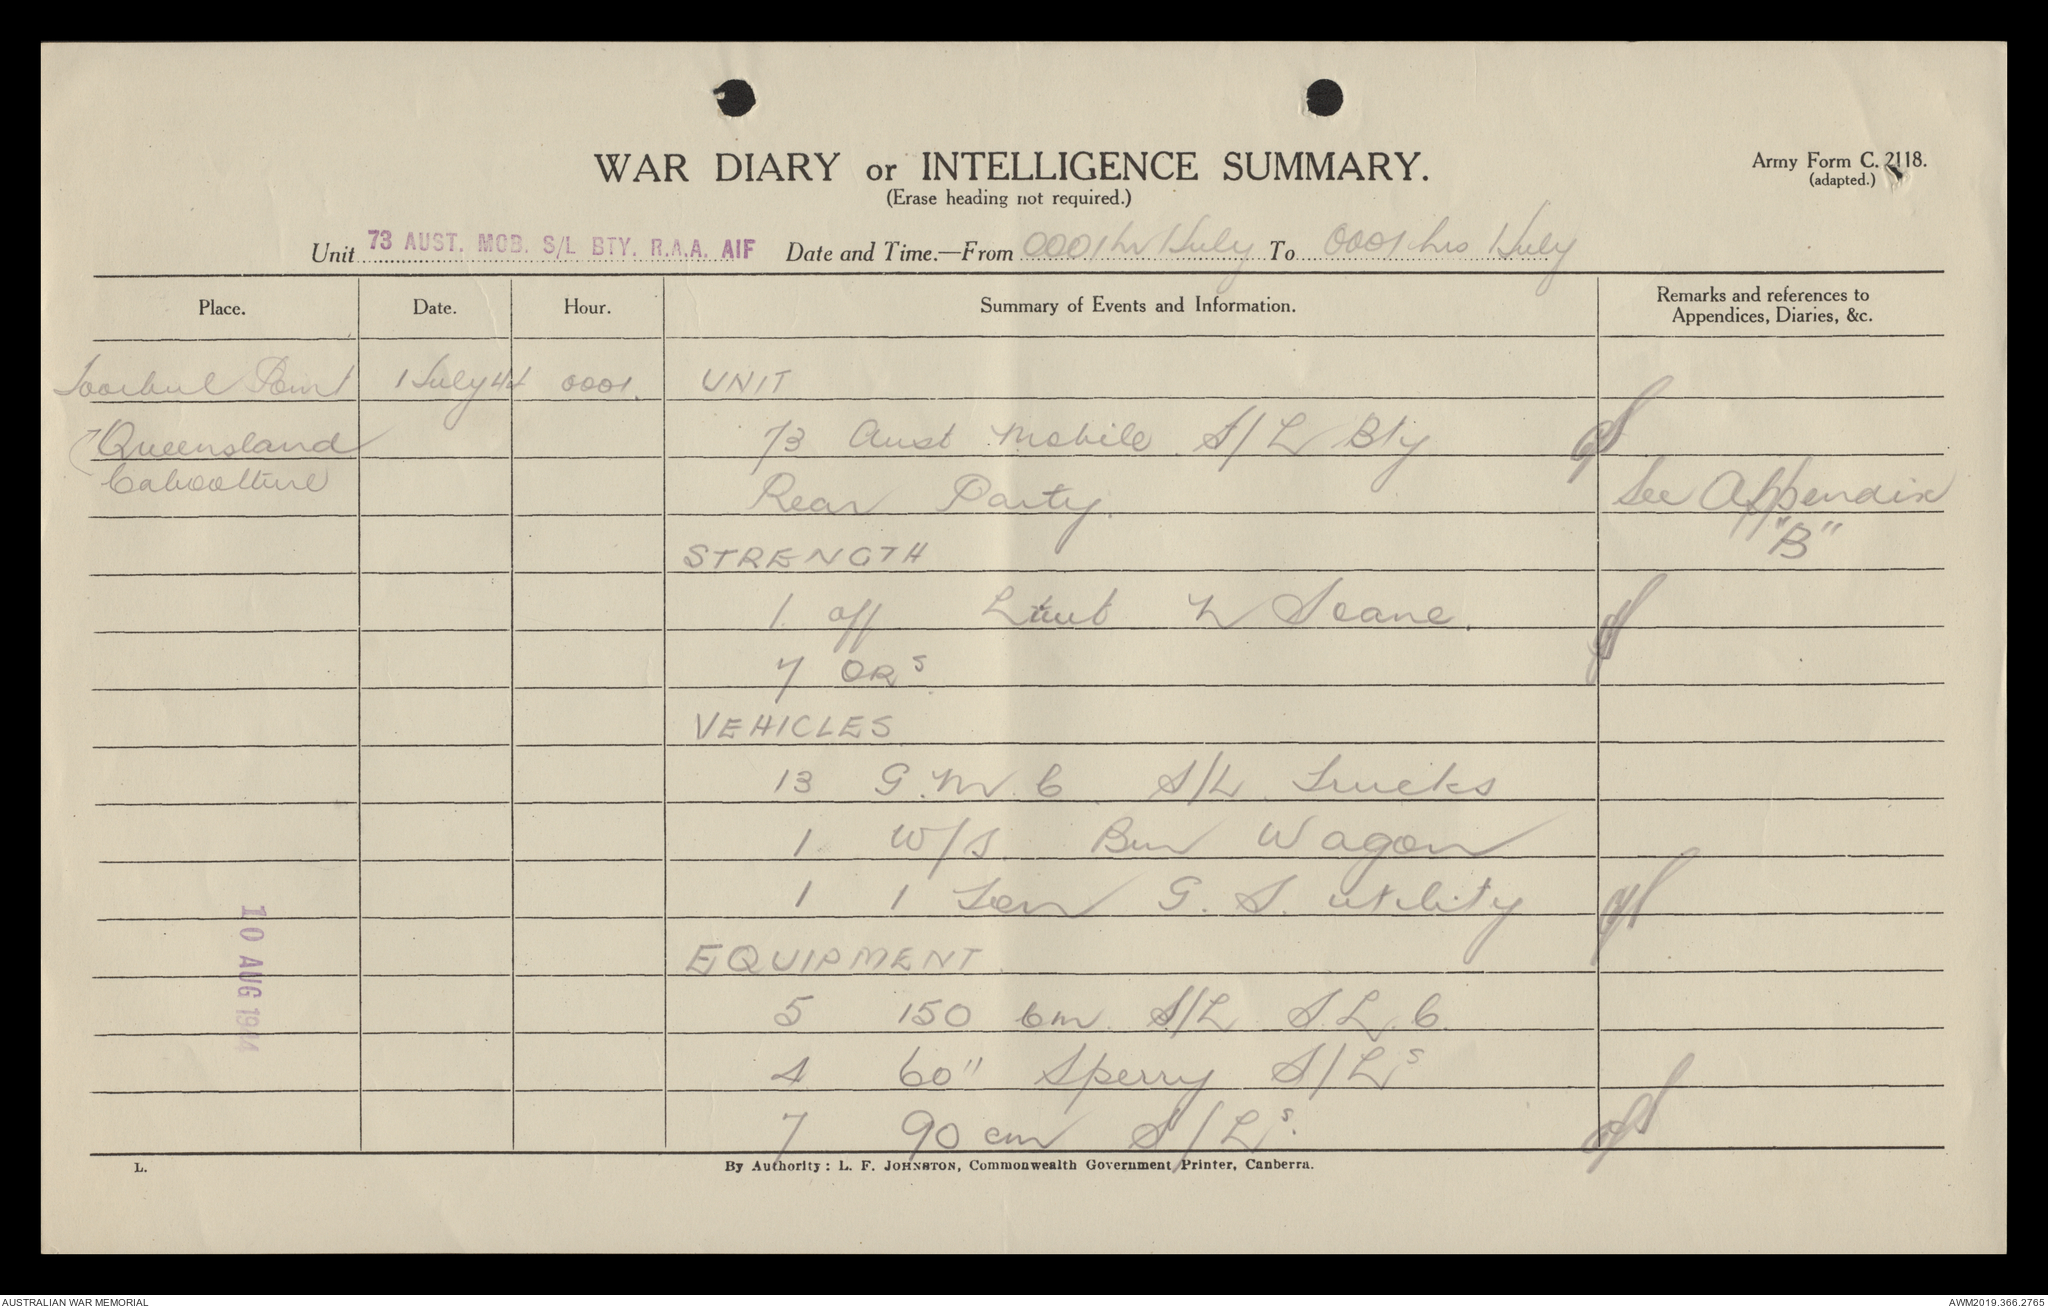 WAR DIARY or INTELLIGENCE SUMMARY.
Army Form C. 2118.
(adapted.)
(Erase heading not required.)
Unit 73 AUST. MOB. S/L BTY. R.A.A. AIF Date and Time.—From 0001 hr 1 July To 0001 hrs 1 July
Place. Date. Hour. Summary of Events and Information. Remarks and references to Appendices, Diaries, &c.
Toorbul Point 1 July 44 0001. UNIT
Queensland 73 Aust Mobile S/L Bty
Caboolture Rear Party. See Appendix
"B"
STRENGTH
1. off Lieut N Seane.
7 ORs
VEHICLES
13 G.M.C. S/L Trucks
1 W/S Bin Wagon
1 1 Ton G.S. utility
EQUIPMENT
5 150 cm S/L S.L.C.
4 60" Sperry S/Ls
7 90 cm S/Ls.
10 AUG 1944
L. By Authority: L. F. JOHNSTON, Commonwealth Government Printer, Canberra.
AUSTRALIAN WAR MEMORIAL
AWM2019.366.2765